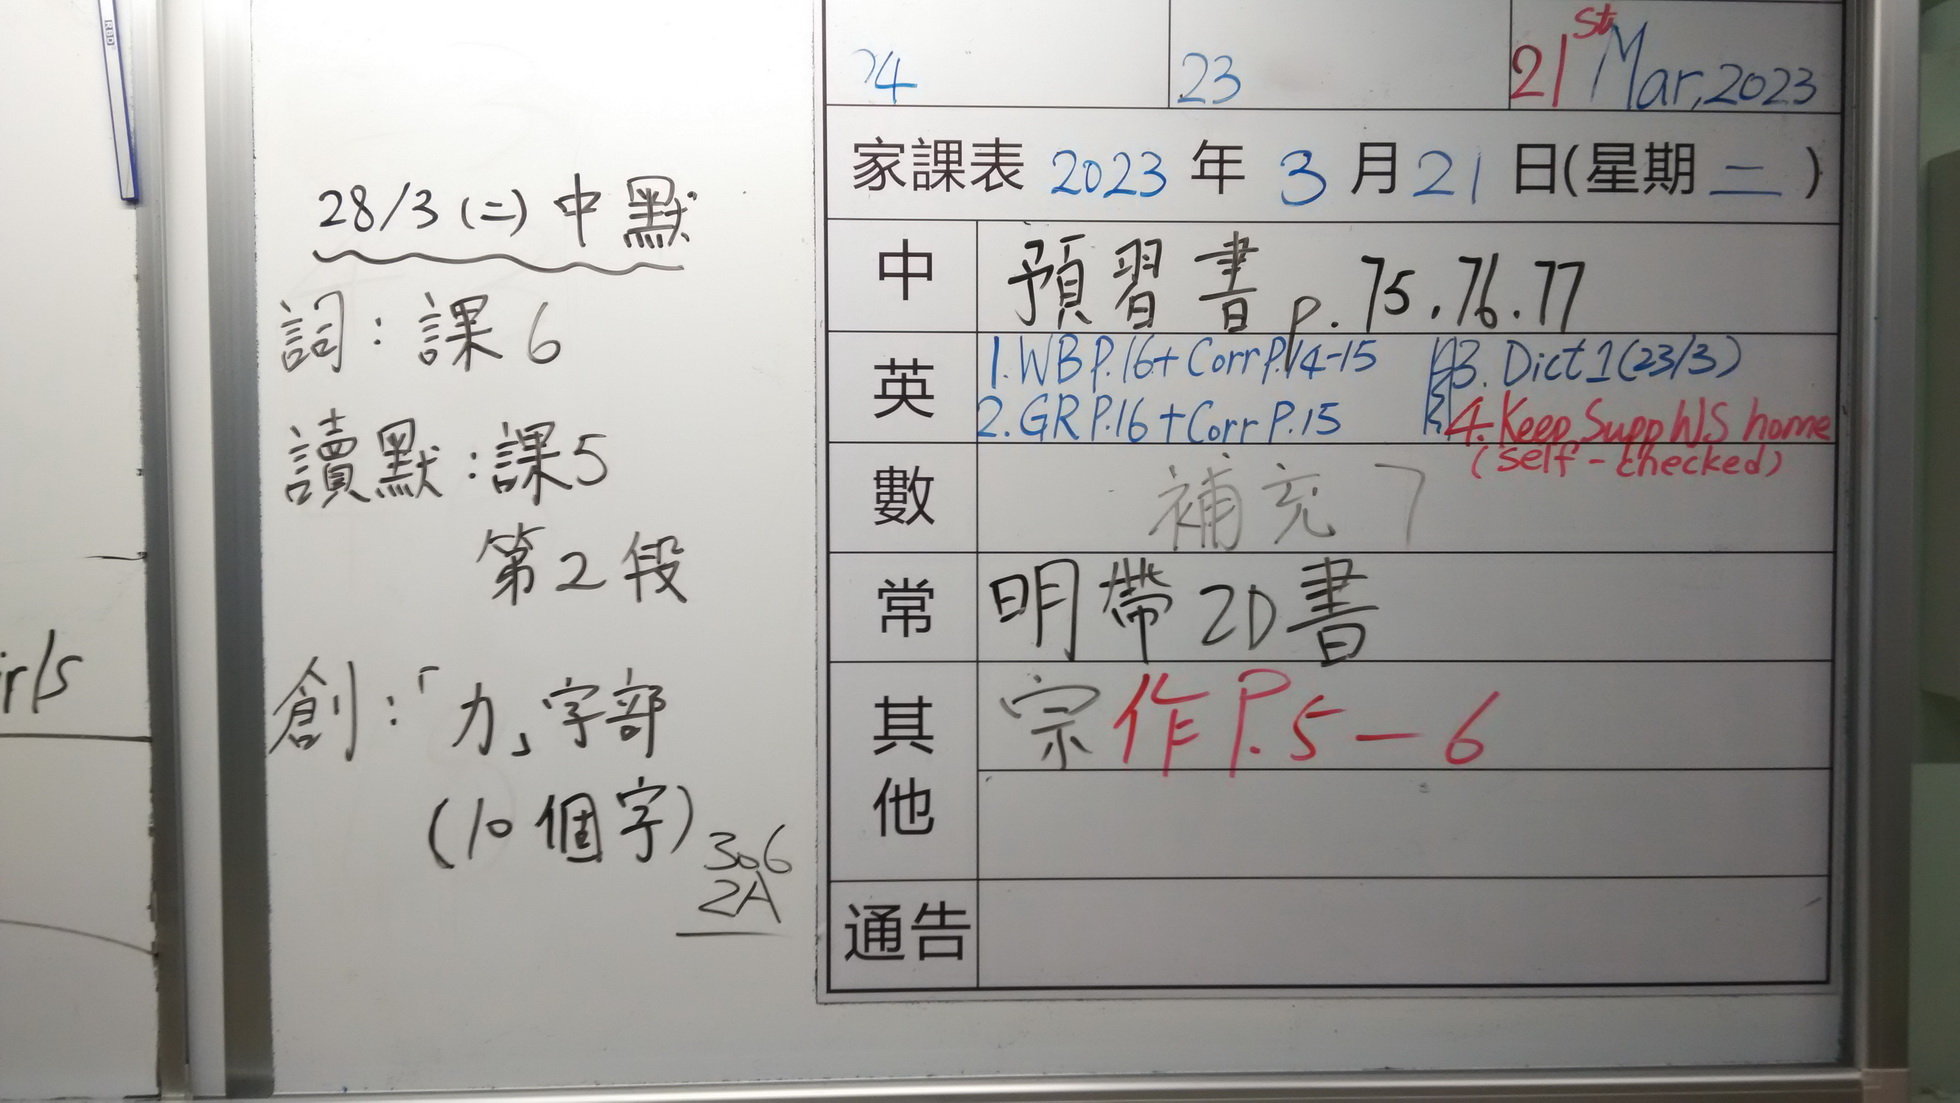 28/3 (二) 中默
詞：課6
讀默：課5
第2段
創：「力」字部
(10個字)
306
2A
24
23
21st Mar, 2023
家課表 2023 年 3 月 21 日(星期 二 )
中 預習書 p. 75.76.77
英 1. WB P.16 + Corr P.14-15
2. GR P.16 + Corr P.15
3. Dict 1 (23/3)
4. Keep Supp WS home
(self-checked)
數 補充 7
常 明帶2D書
其他 宗作 P.5-6
通告